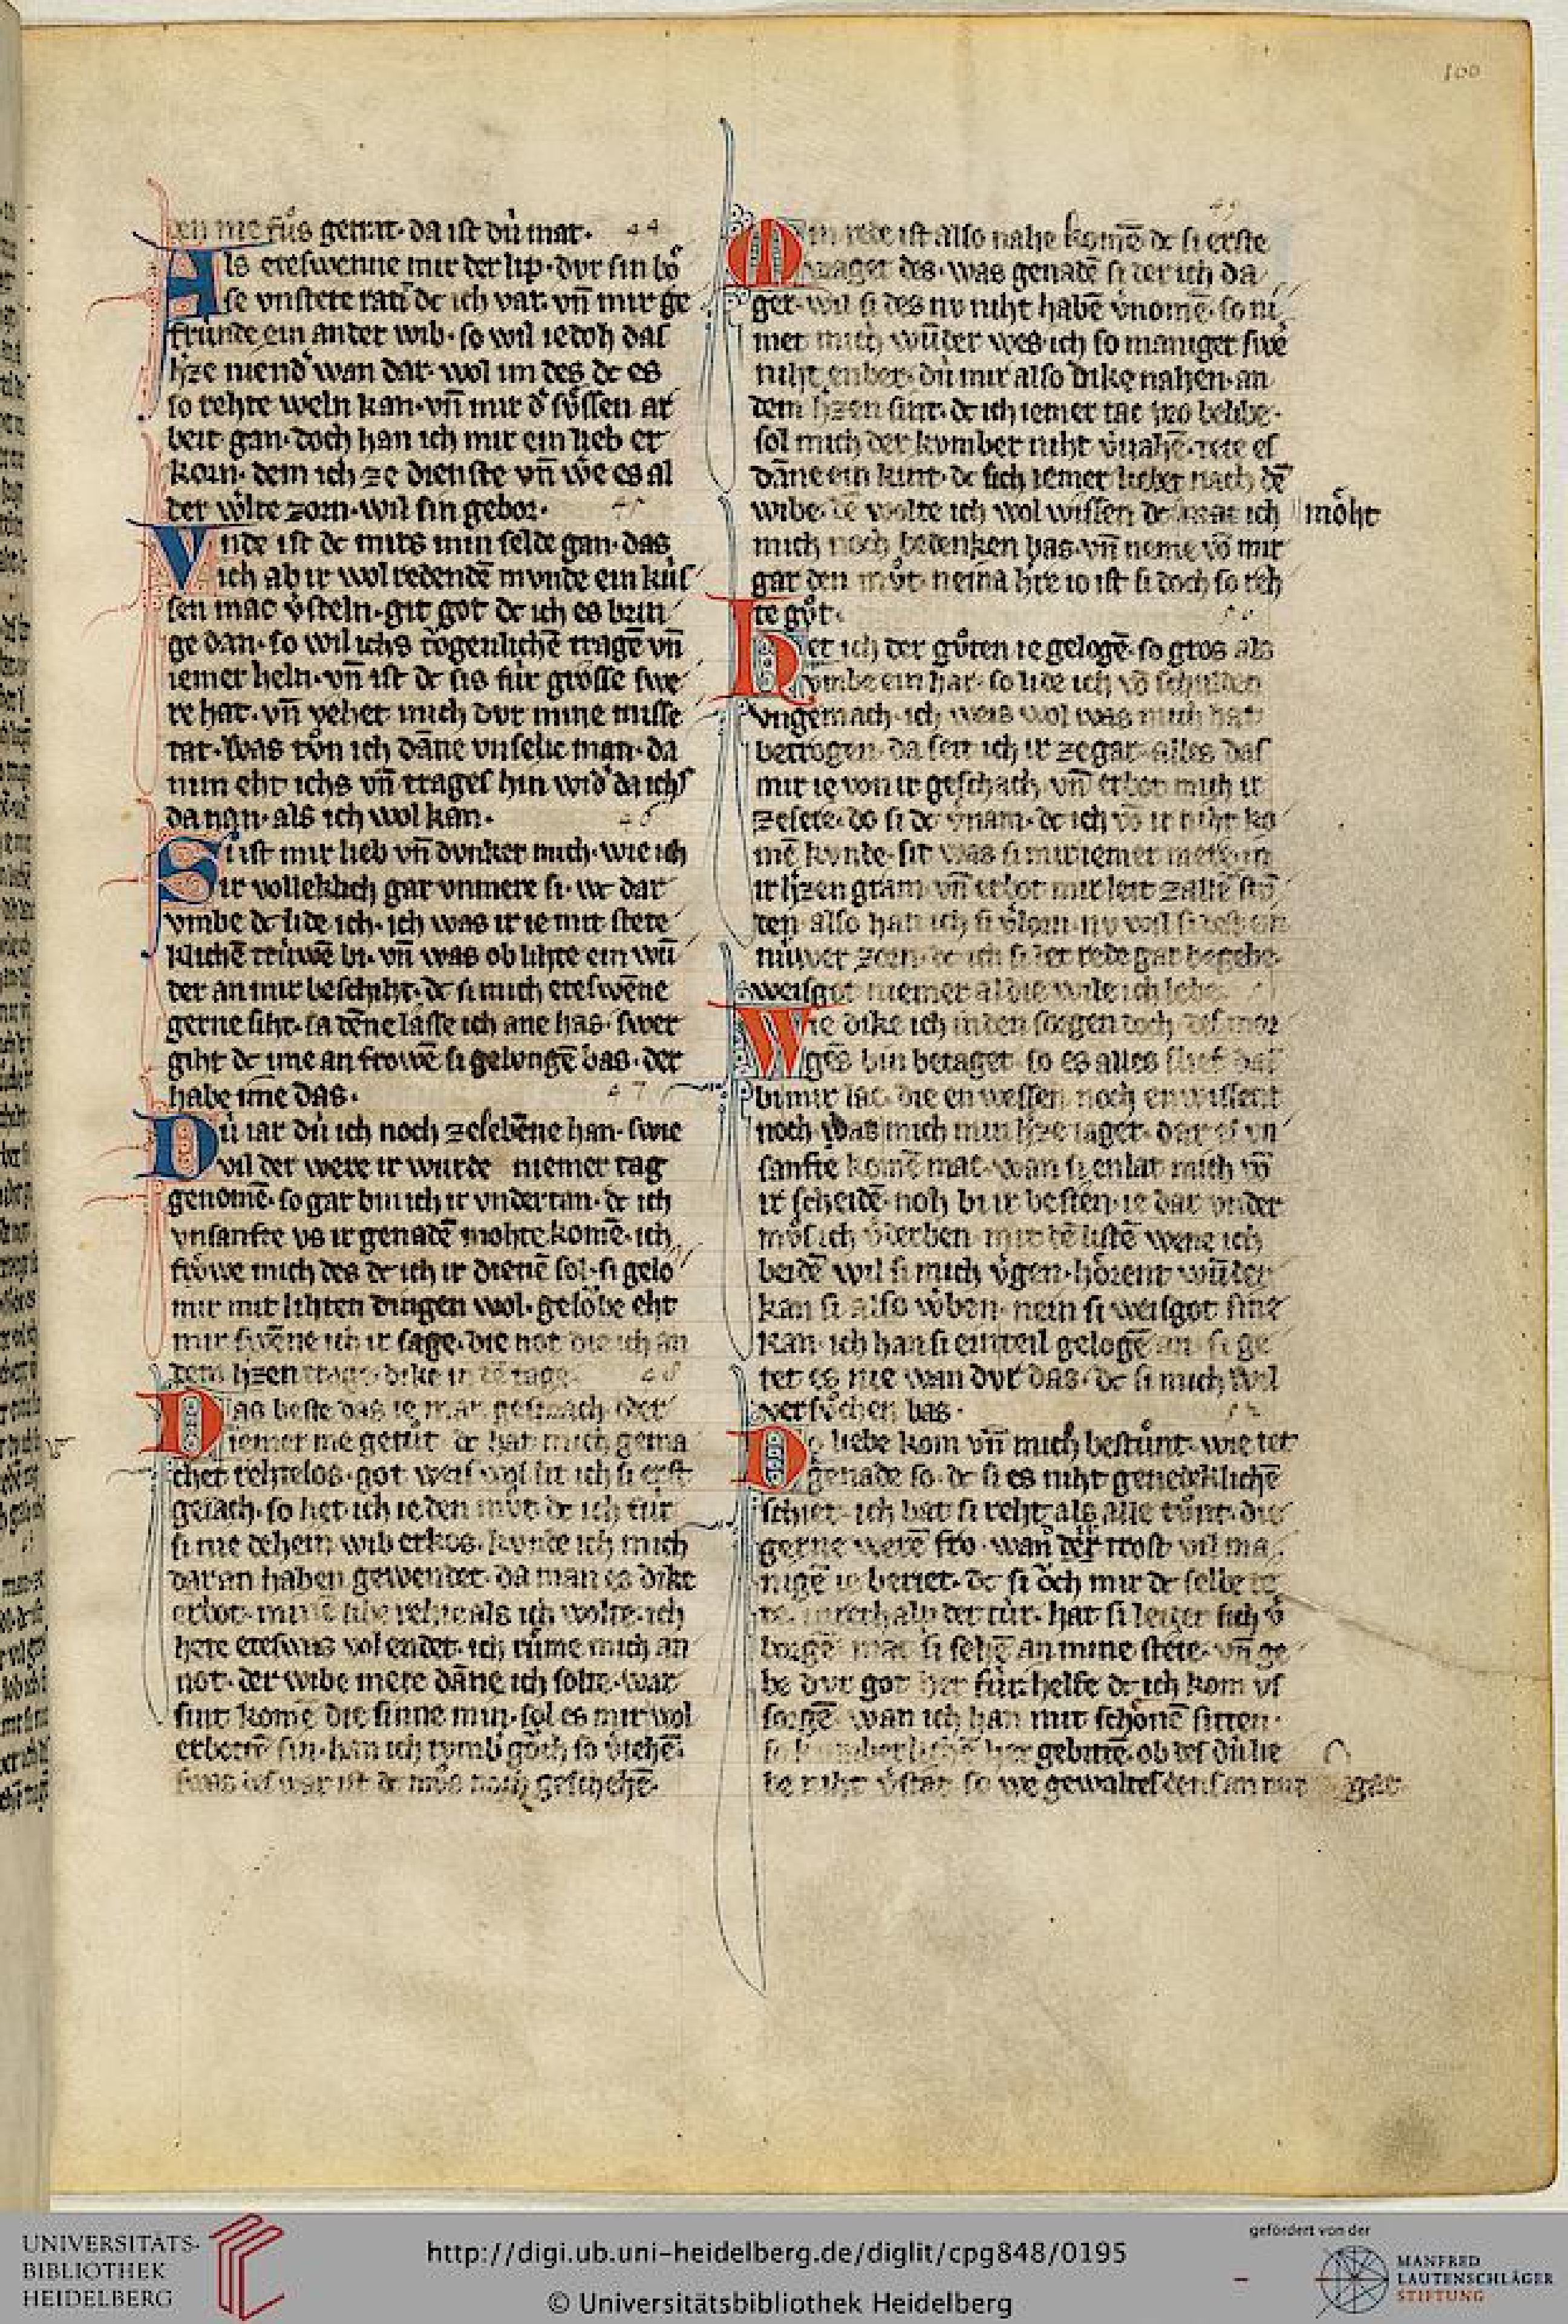 100
ten me fůs getrit· da ist dú mat· 44
Als eteswenne mir der lip· dvr sin bo̊
se vnstete ratet dc ich var· vn̄ mir ge
frúnde ein ander wib· so wil iedoh das
h̾ze niendͬ wan dar· wol im des dc es
so rehte weln kan· vn̄ mir dͬ sv̊ssen ar
beit gan· doch han ich mir ein lieb er
korn· dem ich ze dienste vn̄ we es al
der w̾lte zorn· wil sin geborn· 45
Vnde ist dc mirs min selde gan· das
ich ab ir wol redendē mvnde ein kús
sen mac v̾steln· git got dc ich es brin
ge dan· so wil ichs tǒgenlichē tragē vn̄
iemer heln· vn̄ ist dc sis fúr grosse swe
re hat· vn̄ vehet mich dvr mine misse
tat· was tůn ich dāne vnselic man· da
nim eht ichs vn̄ trages hin widͬ da ichs
da nan· als ich wol kan· 46
Si ist mir lieb vn̄ dvnket mich· wie ich
ir volleklich gar vnmere si· wc dar
vmbe dc lide ich· ich was ir ie mit stete
klichē trúwē bi· vn̄ was ob lihte ein wū
der an mir beschiht· dc si mich eteswēne
gerne siht· sa dēne lasse ich ane has· swer
giht dc ime an frowē si gelvngē bas· der
habe ime das· 47
Dú iar dú ich noch ze lebēne han· swie
vil der were ir wurde niemer tag
genomē· so gar bin ich ir vndertan· dc ich
vnsanfte vs ir genadē mohte komē· ich
frǒwe mich des dc ich ir dienē sol· si gelo
mir mit lihten dingen wol· gelǒbe eht
mir swēne ich ir sage· die not die ich an
dem h̾zen trage· dike in dē tage· 48
Das beste das ie man gesprach· oder
iemer me getůt· dc hat mich gema
chet redelos· got weis wol sit ich si erst
gesach· so het ich ie den můt· dc ich fúr
si nie dehein wib erkos· kvnde ich mich
dar an haben gewendet· da man es dike
erbot· minē libe rehte als ich wolte· ich
hete eteswas volendet· ich růme mich an
not· der wibe mere dāne ich solte· war
sint komē die sinne min· sol es mir wol
erbotē sin· han ich tvmb̾ gǒch so v̾iehē·
swas des war ist dc můs noch geschehē·
Min rede ist also nahe komē dc si erste 49
vraget des· was genadē si der ich da
ger· wil si des nv niht habē v̾nomē· so ni
met mich wūder wes· ich so maniger swe
niht enber· dú mir also dike nahen· an
dem h̾zen sint· dc ich iemer tac vro belibe·
sol mich der kvmber niht v̾vahē· tete es
dāne ein kint· dc sich iemer lieber nach dē
wibe· dē wolte ich wol wissen dc ich mǒht
mich noch bedenken bas· vn̄ neme vō mir
gar den můt· neina h̾re io ist si doch so reh
te gůt·
Het ich der gůten ie gelogē· so gros als
vmbe ein har· so lide ich vō schulden
vngemach· ich weis wol was mich hat
betrogen· da seit ich ir ze gar· alles das
mir ie von ir geschach· vn̄ erbot mih ir
ze sere· do si dc v̾nam· dc ich vō ir niht ko
mē kvnde· sit was si mir iemer mere· in
ir h̾zen gram· vn̄ erbot mir leit zallē stū
den· also han ich si v̾lorn· nv wil si
núwer zorn· dc ich si der rede gar begebe·
weisgot niemer al die wile ich lebe·
Wie dike ich in den sorgen doch· des mor
gēs bin betaget· so es alles slief das
bi mir lac· die enwessen noch enwissent
noch· was mich min h̾ze iaget· dar es vn
sanfte komē mac· wan si enlat mich vō
ir scheidē· noh bi ir bestēn· ie dar vnder
můs ich v̾derben· mit dē listē wene ich
beidē wil si mich v̾gen· hǒrent wūder
kan si also w̾ben· nein si weisgot sine
kan· ich han si ein teil gelogē an· si ge
tet es nie wan dvr das· dc si mich wil
versůchen bas·
Do liebe kom vn̄ mich bestůnt· wie tet
genade so· dc si es niht genedeklichē
schiet· ich bat si reht als alle tůnt· die
gerne werē fro· wan der trost vil ma
nigē ie beriet· dc si ǒch mir dc selbe te
te· inrethalp der túr· hat si leider sich v̾
borgē· mac si sehē an mine stete· vn̄ ge
be dvr got her fúr· helfe dc ich kom vs
sorgē· wan ich han mit schǒnē sitten·
so kvmberlichē her gebitē· ob des dú lie
be niht v̾stat· so we gewaltes den san mir
UNIVERSITÄTS-
BIBLIOTHEK
HEIDELBERG
http://digi.ub.uni-heidelberg.de/diglit/cpg848/0195
© Universitätsbibliothek Heidelberg
gefördert von der
MANFRED
LAUTENSCHLÄGER
STIFTUNG